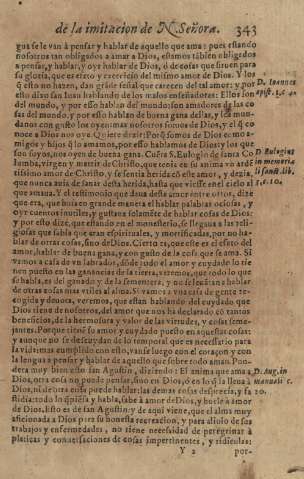 de la imitacion de N. Señora. 343
gua se le van à pensar y hablar de aquello que ama: pues estando
nosotros tan obligados a amar a Dios, estamos tãbien obligados
a pensar, y hablar, y oyr hablar de Dios, ò de cosas que siruen para
su gloria, que es cierto y exercicio del mismo amor de Dios. Y los
q̃ esto no hazen, dan grãde señal que carecen del tal amor: y por
esto dixo san Iuan hablando de los malos enseñadores: Ellos son
del mundo, y por esso hablan del mundo: son amadores de las co
sas del mundo, y por esso hablan de buena gana dellas, y los mun
danos con gusto los oyen: mas nosotros somos de Dios, y el q̃ co
noce a Dios nos oye. Quiere dezir: Porq̃ somos de Dios como a-
migos y hijos q̃ lo amamos, por esso hablamos de Dios: y los que
son suyos, nos oyen de buena gana. Cuẽta S. Eulogio de santa Co
lumba, virgen y martir de Christo, que tenia en su anima vn ardẽ
tissimo amor de Christo, y se sentia herida cõ este amor, y dezia,
que nunca auia de sanar desta herida, hasta que viesse en el cielo al
que amaua. Y el testimonio que daua deste amor entre otros, dize
que era, que huia en grande manera el hablar palabras ociosas, y
oyr cuentos inutiles, y gustaua solamẽte de hablar cosas de Dios:
y por esto dize, que estando en el monesterio, se llegaua a las reli-
giosas que sabia que eran espirituales, y mortificadas, por no ha-
blar de otras cosas, sino de Dios. Cierto es, que este es el efeto del
amor, hablar de buena gana, y con gusto de la cosa que se ama. Si
vamos a casa de vn labrador, adõde todo el amor y cuydado lo tie
nen puesto en las ganancias de la tierra, veremos, que todo lo que
se habla, es del ganado y de la sementera, y no se les dira a hablar
de otras cosas mas vtiles al alma. Si vamos a vna casa de gente re-
cogida y deuota, veremos, que estan hablando del cuydado que
Dios tiene de nosotros, del amor que nos ha declarado cõ tantos
beneficios, de la hermosura y valor de las virtudes, y cosas seme-
jantes. Porque tienẽ su amor y cuydado puesto en aquestas cosas:
y aunque no se descuydan de lo temporal que es necessario para
la vida: mas cumplido con ello, vanse luego con el coraçon y con
la lengua a pensar y hablar de aquello que sobre todo aman. Pon-
dera muy bien esto san Agustin, diziendo: El anima que ama a
Dios, otra cosa no puede pensar, sino en Dios, ò en lo q̃ la lleua à
Dios, ni de otra cosa puede hablar: las demas cosas desprecia, y fa
stidia: todo lo q̃ piẽsa y habla, sabe à amor de Dios, y huele à amor
de Dios. Esto es de san Agustin: y de aqui viene, que el alma muy
aficionada a Dios para su honesta recreacion, y para aliuio de sus
trabajos y enfermedades, no tiene necessidad de peregrinar à
platicas y conuersaciones de cosas impertinentes, y ridiculas:
Y 2 por-
D. Ioannes
epist. 1. c. 4.
D. Eulogius
in memoria
li sanct. lib.
3. c. 10.
D. Aug. in
manuali c.
20.